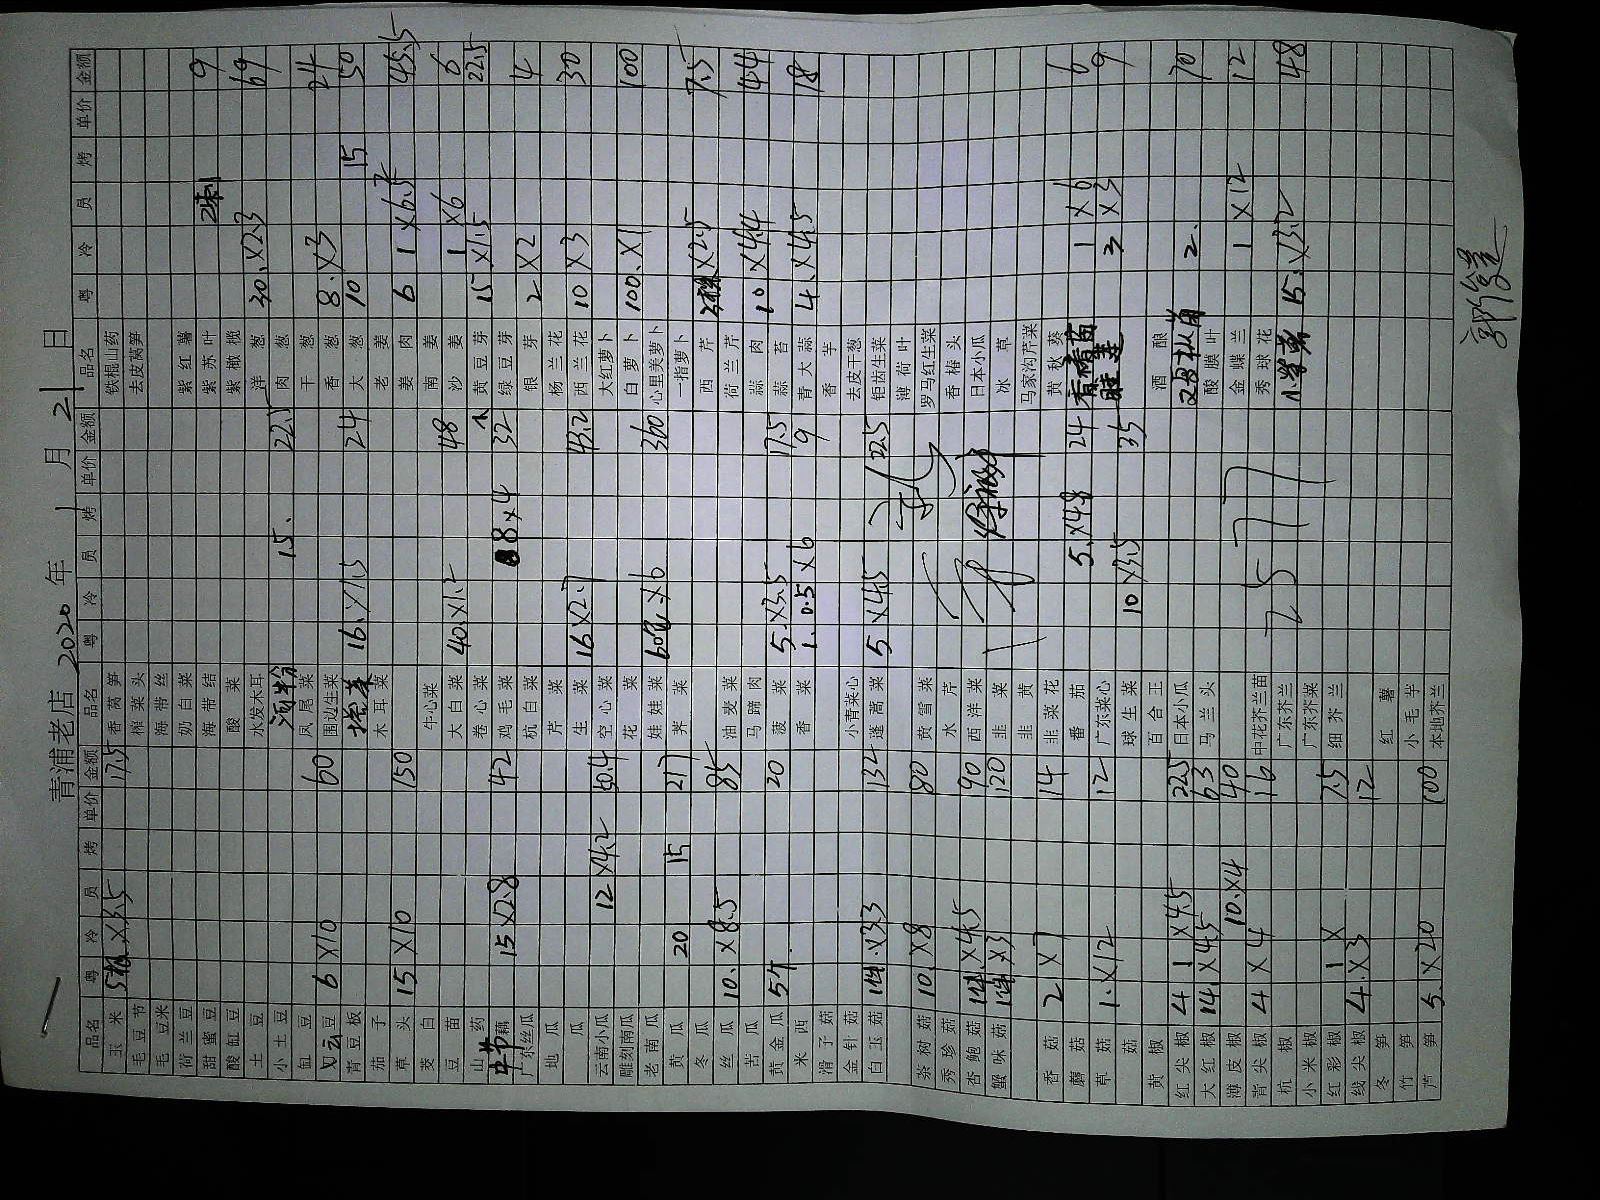 青浦老店 2020 年 1 月 21 日
品名 粤 冷 员 烤 单价 金额 品名 粤 冷 员 烤 单价 金额 品名 粤 冷 员 烤 单价 金额
玉米 ×3.5 17.5 香莴笋 铁棍山药
毛豆节 榨菜头 去皮莴笋
毛豆米 海带丝
荷兰豆 奶白菜 紫红薯
甜蜜豆 海带结 紫苏叶 9
酸缸豆 酸菜 紫橄榄
土豆 水发木耳 洋葱 30.×2.3 69
小土豆 河粉 15. 22.5 肉葱
缸豆 凤尾菜 干葱
云豆 6×10 60 围边生菜 香葱 8.×3 24
青豆板 塔菜 16.×1.5 24 大葱 10 15 50
茄子 木耳菜 老姜
草头 15×10 150 姜肉 6 1×6.5 45.5
茭白 牛心菜 南姜
豆苗 大白菜 40.×1.2 48 沙姜 1×6 6
山药 卷心菜 黄豆芽 15×1.5 22.5
中节藕 15×2.8 42 鸡毛菜 8×4 32 绿豆芽
广东丝瓜 杭白菜 银芽 2×2 4
地瓜 芹菜 杨兰花
瓜 生菜 16×2.7 43.2 西兰花 10×3 30
云南小瓜 12×4.2 50.4 空心菜 大红萝卜
雕刻南瓜 花菜 白萝卜 100.×1 100
老南瓜 娃娃菜 ×6 360 心里美萝卜
黄瓜 20 15 217 荠菜 一指萝卜
冬瓜 西芹 ×2.5 7.5
丝瓜 10.×8.5 85 油麦菜 荷兰芹
苦瓜 马蹄肉 蒜肉 10×4.4 44
黄金瓜 5个 20 菠菜 5.×3.5 17.5 蒜苔
米西 香菜 1. 0.5×6 9 青大蒜 4.×4.5 18
滑子菇 香芋
金针菇 小青菜心 去皮干葱
白玉菇 ×3.3 132 蓬蒿菜 5×4.5 22.5 钜齿生菜
薄荷叶
茶树菇 10.×8 80 黄雪菜 罗马红生菜
秀珍菇 水芹 香椿头
杏鲍菇 ×4.5 90 西洋菜 日本小瓜
蟹味菇 ×3 120 韭菜 冰草
韭黄 马家沟芹菜
香菇 2×7 14 韭菜花 黄秋葵 1×6 6
蘑菇 番茄 5.×4.8 24 3×3 9
草菇 1.×12 12 广东菜心
菇 球生菜 10×3.5 35
黄椒 百合王 酒酿
红尖椒 4 1×4.5 22.5 日本小瓜 2. 70
大红椒 14.×4.5 63 马兰头 酸膜叶
薄皮椒 10.×4 40 金蝶兰 1×12 12
青尖椒 4×4 16 中花芥兰苗 秀球花
杭椒 广东芥兰 15.×3.2 48
小米椒 广东芥菜
红彩椒 1× 7.5 细芥兰
线尖椒 4.×3 12
冬笋 红薯
竹笋 小毛芋
芦笋 5.×20 100 本地芥兰
2577